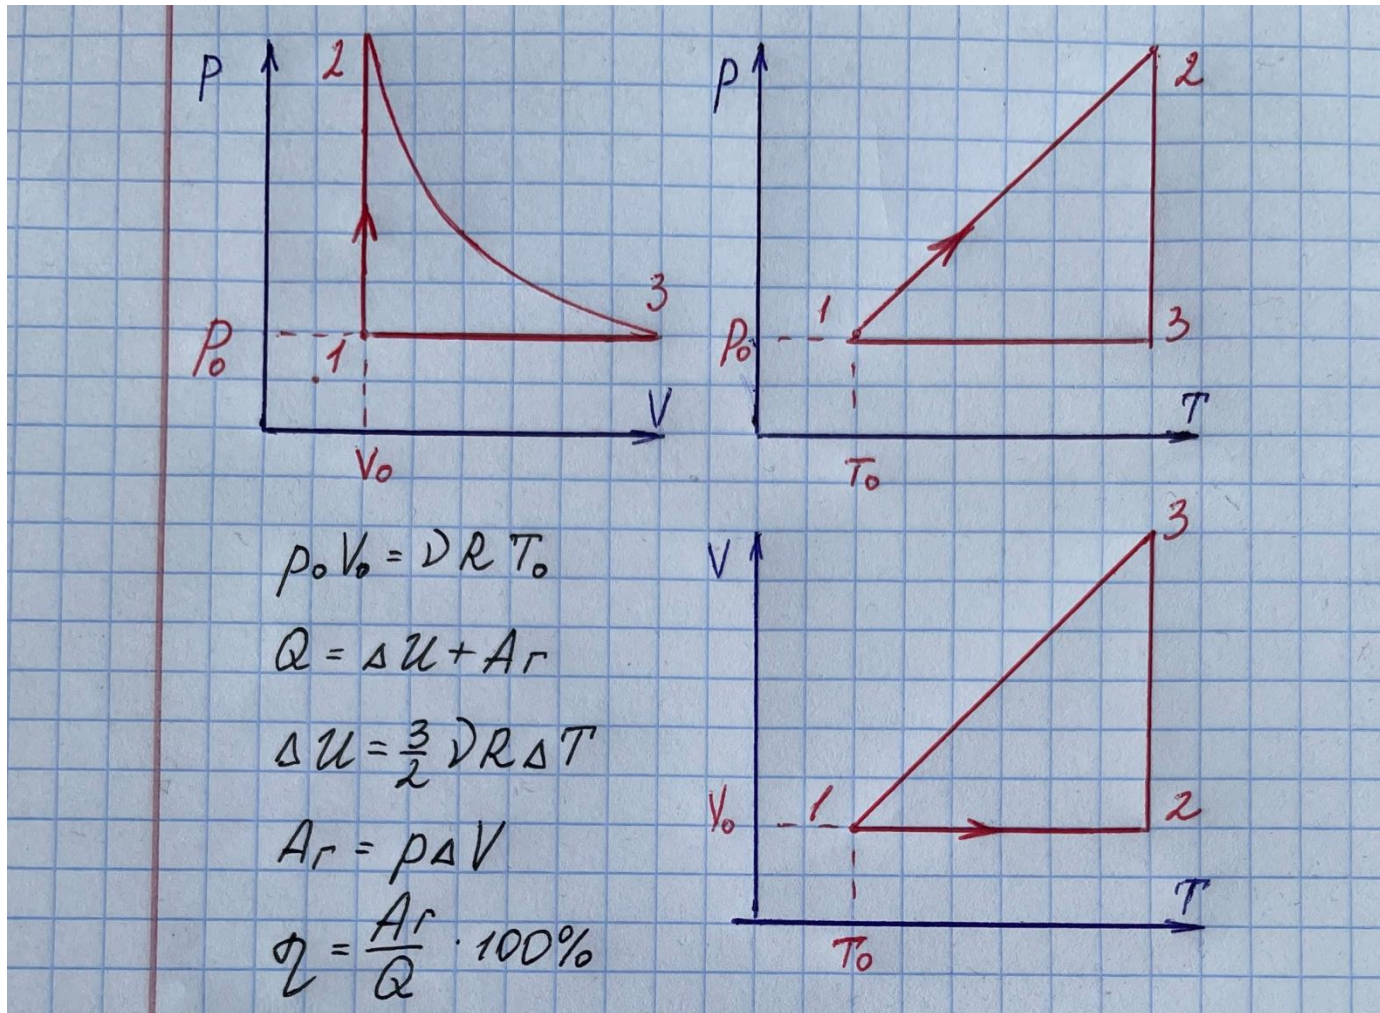 P
2
3
P₀
1
V
V₀
P
2
1
3
P₀
T
T₀
p₀V₀ = νRT₀
Q = ΔU + Aг
ΔU = 3/2 νRΔT
Aг = pΔV
η = Aг/Q · 100%
V
3
V₀
1
2
T
T₀